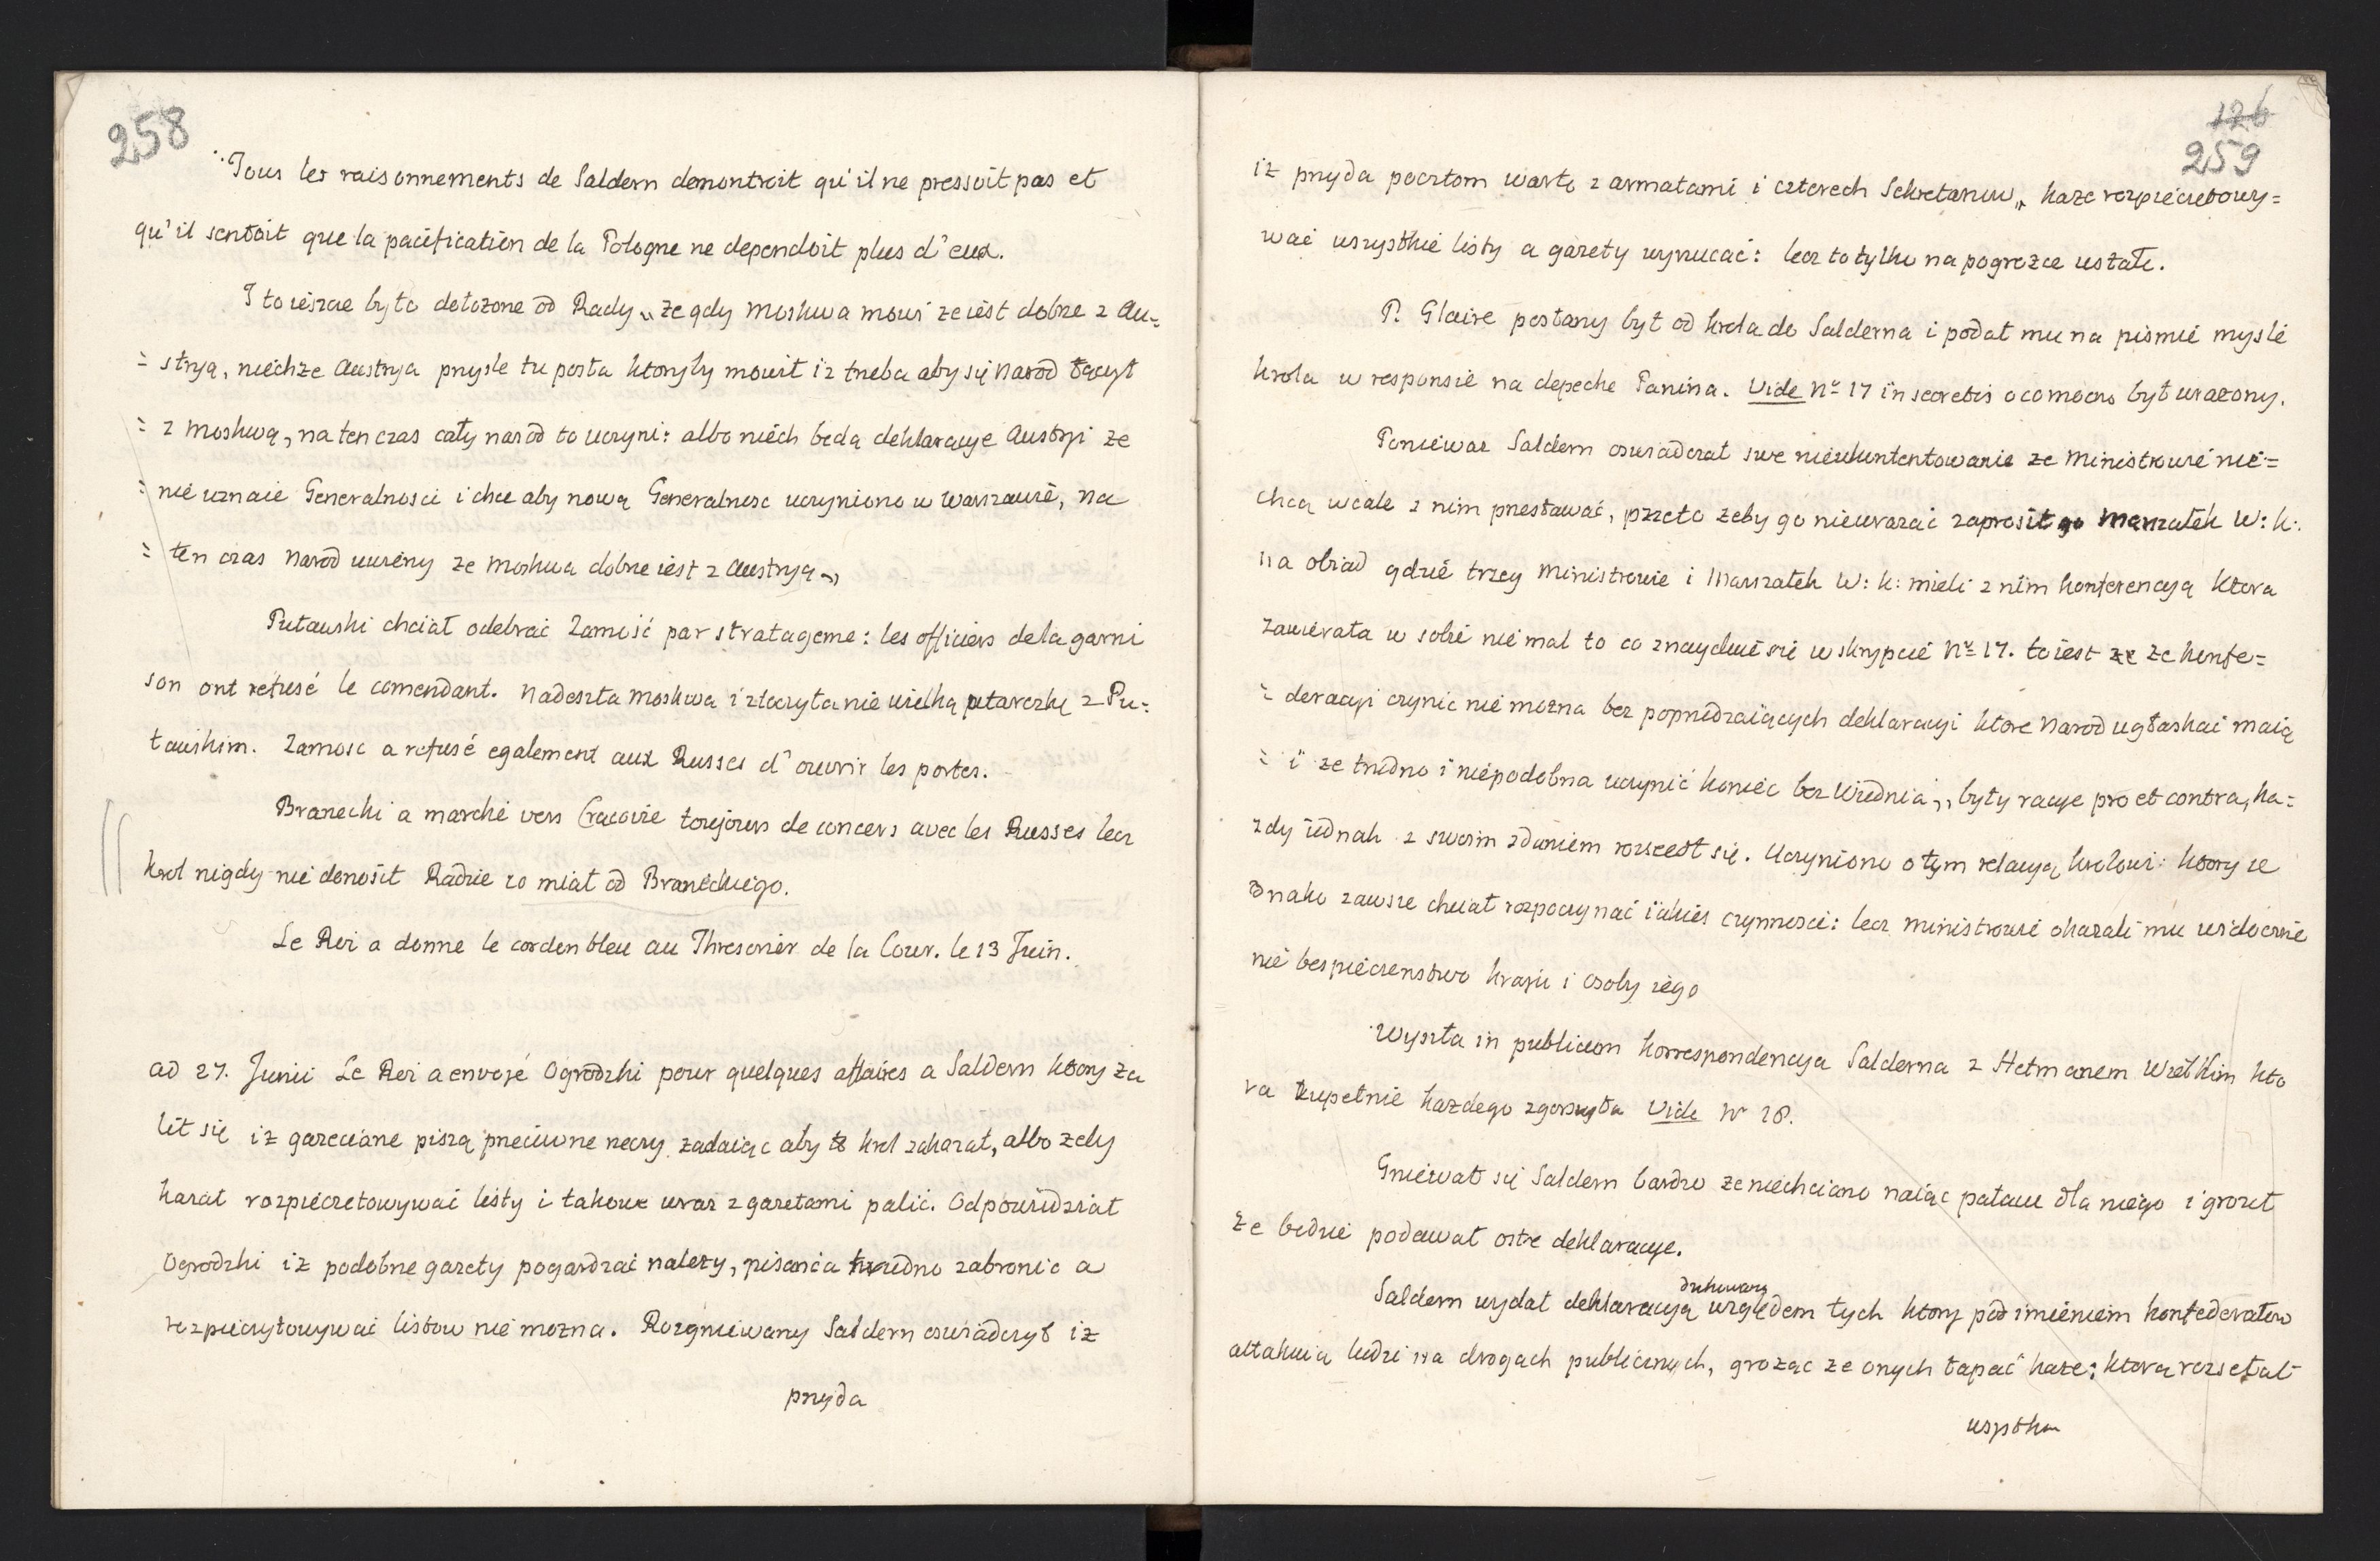 258
"Tous les raisonnements de Saldern demontroit qu'il ne pressoit pas et
qu'il sentoit que la pacification de la Pologne ne dependoit plus d'eux.
I to ieszcze było dołożone od Rady „ ze gdy Moskwa mowi ze iest dobrze z Au=
= stryą, niechze Austrya przysle tu posła ktoryby mowił iz trzeba aby się Narod łączył
= z Moskwą, na ten czas cały narod to uczyni: albo niech będą deklaracye Austryi ze
= nie uznaie Generalnosci i chce aby nową Generalnosc uczyniono w Warszawie, na
= ten czas Narod uwierzy ze Moskwa dobrze iest z Austryą „
Puławski chciał odebrać Zamość par stratageme: les officiers de la garni
son ont refusé le comendant. Nadeszła Moskwa i ztoczyła nie wielką utarczkę z Pu=
ławskim. Zamosc a refusé egalement aux Russes d'ouvrir les portes.
Branecki a marché vers Cracovie toujours de concers avec les Russes lecz
krol nigdy nie donosił Radzie co miał od Braneckiego.
Le Roi a donne le cordon bleu au Thresorier de la Cour. le 13 Juin.
ad 27. Junii Le Roi a envoyé Ogrodzki pour quelques affaires a Saldern ktory za
lił się iz gazeciane piszą przeciwne rzeczy zadaiąc aby to krol zakazał, albo zeby
kazał rozpieczetowywać listy i takowe wraz z gazetami palić. Odpowiedział
Ogrodzki iz podobne gazety pogardzać nalezy, pisania trudno zabronic a
rozpieczytowywać listow nie mozna. Rozgniewany Saldern oswiadczył iz
przyda
126
259
iz przyda pocztom wartę z armatami i czterech Sekretarzow „ kaze rozpieczetowy=
wać wszystkie listy a gazety wyrzucać: lecz to tylko na pogrozce ustało.
P. Glaire posłany był od krola do Salderna i podał mu na pismie mysli
krola w responsie na depeche Panina. Vide No 17 in secretis o co mocno był urazony.
Poniewaz Saldern oswiadczał swe nieukontentowanie ze Ministrowie nie=
chcą wcale z nim przestawać, przeto zeby go nieurazać zaprosił go Marszałek W: k:
na obiad gdzie trzey Ministrowie i Marszałek W: k: mieli z nim konferencyą ktora
zawierała w sobie nie mal to co znayduie się w skrypcie No 17. to iest ze ze konfe=
= deracyi czynic nie mozna bez poprzedzaiących deklaracyi ktore Narod ugłaskać maią
= i ze trudno i niepodobna uczynić koniec bez Wiednia „ były racye pro et contra, ka=
zdy iednak z swoim zdaniem rozszedł się. Uczyniono o tym relacyą krolowi: ktory ie
dnako zawsze chciał rozpoczynać iakies czynnosci: lecz Ministrowie okazali mu widocznie
nie bespieczenstwo kraju i osoby iego
Wyszła in publicum korrespondencya Salderna z Hetmanem Wielkim kto
ra zupełnie kazdego zgorszyła Vide No 18.
Gniewał się Saldern bardzo ze niechciano naiąc pałacu dla niego i groził
ze bedzie podawał ostre deklaracye.
drukowaną
Saldern wydał deklaracyą względem tych ktorzy pod imieniem konfederatow
attakuią ludzi na drogach publicznych, grożąc ze onych łapać kaze: ktorą rozsełał
wszystko